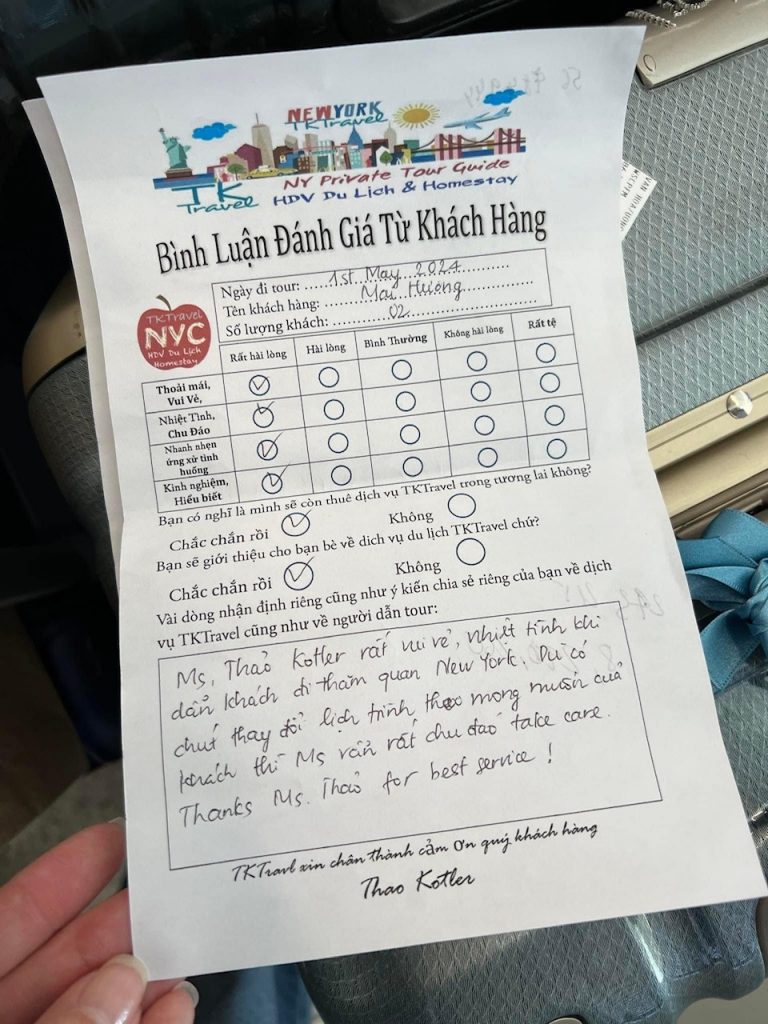 NEWYORK
TKTravel
TK
Travel
NY Private Tour Guide
HDV Du Lịch & Homestay
Bình Luận Đánh Giá Từ Khách Hàng
Ngày đi tour: 1st May 2024
Tên khách hàng: Mai Hương
Số lượng khách: 02
TKTravel
NYC
HDV Du Lịch
Homestay
Rất hài lòng Hài lòng Bình Thường Không hài lòng Rất tệ
Thoải mái,
Vui Vẻ,
Nhiệt Tình,
Chu Đáo
Nhanh nhẹn
ứng xử tình
huống
Kinh nghiệm,
Hiểu biết
Bạn có nghĩ là mình sẽ còn thuê dịch vụ TKTravel trong tương lai không?
Chắc chắn rồi Không
Bạn sẽ giới thiệu cho bạn bè về dich vụ du lịch TKTravel chứ?
Chắc chắn rồi Không
Vài dòng nhận định riêng cũng như ý kiến chia sẻ riêng của bạn về dịch
vụ TKTravel cũng như về người dẫn tour:
Ms, Thảo Kotler rất vui vẻ, nhiệt tình khi
dẩn khách đi thăm quan New York. Dù có
chút thay đổi lịch trình theo mong muốn của
khách thì Ms vẫn rất chu đáo take care.
Thanks Ms. Thảo for best service !
TKTravl xin chân thành cảm Ơn quý khách hàng
Thao Kotler